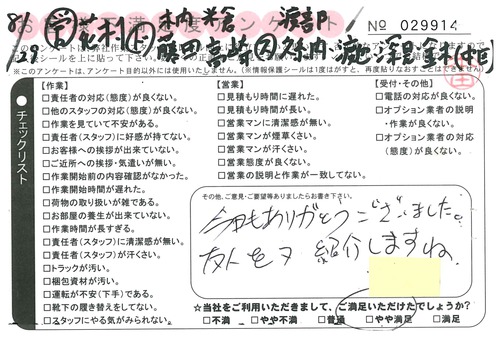 8/29
№ 029914
木内 米倉 渡部
藤田 高崎
※このアンケートは、アンケート目的以外には使用いたしません。(※情報保護シールは1度はがすと、再度貼りなおすことはできません。)
チェックリスト
【作業】
□責任者の対応(態度)が良くない。
□他のスタッフの対応(態度)が良くない。
□作業を見ていて不安がある。
□責任者(スタッフ)に好感が持てない。
□お客様への挨拶が出来ていない。
□ご近所への挨拶・気遣いが無い。
□作業開始前の内容確認がなかった。
□作業開始時間が遅れた。
□荷物の取り扱いが雑である。
□お部屋の養生が出来ていない。
□作業時間が長すぎる。
□責任者(スタッフ)に清潔感が無い。
□責任者(スタッフ)が汗くさい。
□トラックが汚い。
□梱包資材が汚い。
□運転が不安(下手)である。
□靴下の履き替えをしてない。
□スタッフにやる気がみられない。
【営業】
□見積もり時間に遅れた。
□見積もり時間が長い。
□営業マンに清潔感が無い。
□営業マンが煙草くさい。
□営業マンが汗くさい。
□営業態度が良くない。
□営業の説明と作業が一致してない。
【受付・その他】
□電話の対応が良くない。
□オプション業者の説明
・作業が良くない。
□オプション業者の対応
(態度)が良くない。
その他、ご意見・ご要望等ありましたらお書き下さい。
今回もありがとうございました。
友人を又紹介しますね
☆当社をご利用いただきまして、ご満足いただけたでしょうか?
□不満 □やや不満 □普通 □やや満足 □満足